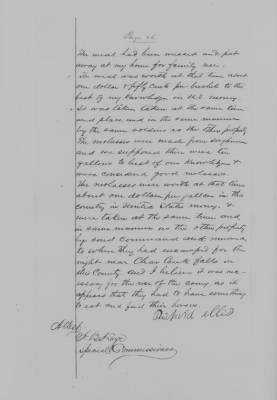 Page 26
The meal had been and put
away at my home for family use.
The meal was worth at that time about
one dollar & fifty cents per bushel to the
best of my knowledge in U.S. money.
It was taken at the same time
and place and in the same manner
by the same soldiers as the other property
The molasses were made from
and we supposed there were ten
gallons to best of our knowledge &
were considered good molasses.
The molasses were worth at that time
about one dollar per gallon in this
country in United States money &
were taken at the same time and
in same manner as the other property
by said Command and
to where they had encamped for the
night near Clear Creek falls in
this County and I believe it was nec-
essary for the use of the army as it
appears that they had to have something
to eat and feed their horses.
Richard Ellis
Attest
Special Commissioner